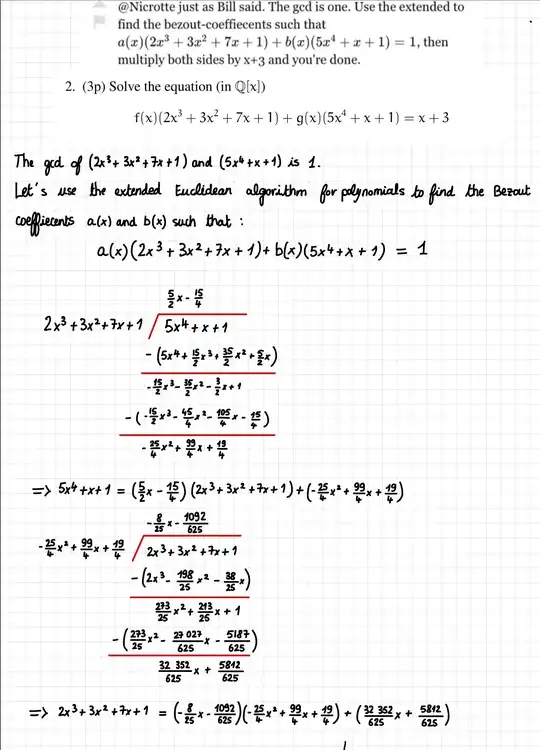 @Nicrotte just as Bill said. The gcd is one. Use the extended to
find the bezout-coeffiecents such that
a(x)(2x³ + 3x² + 7x + 1) + b(x)(5x⁴ + x + 1) = 1, then
multiply both sides by x+3 and you're done.
2. (3p) Solve the equation (in ℚ[x])
f(x)(2x³ + 3x² + 7x + 1) + g(x)(5x⁴ + x + 1) = x + 3
The gcd of (2x³+3x²+7x+1) and (5x⁴+x+1) is 1.
Let's use the extended Euclidean algorithm for polynomials to find the Bezout
coeffiecents a(x) and b(x) such that :
a(x)(2x³+3x²+7x+1)+b(x)(5x⁴+x+1) = 1
5/2x - 15/4
2x³+3x²+7x+1 5x⁴+x+1
-(5x⁴+15/2x³+35/2x²+5/2x)
-15/2x³-35/2x²-3/2x+1
-(-15/2x³-45/4x²-105/4x-15/4)
-25/4x²+99/4x+19/4
=> 5x⁴+x+1 = (5/2x-15/4)(2x³+3x²+7x+1)+(-25/4x²+99/4x+19/4)
-8/25x-1092/625
-25/4x²+99/4x+19/4 2x³+3x²+7x+1
-(2x³-198/25x²-38/25x)
273/25x²+213/25x+1
-(273/25x²-27027/625x-5187/625)
32352/625x+5812/625
=> 2x³+3x²+7x+1 = (-8/25x-1092/625)(-25/4x²+99/4x+19/4)+(32352/625x+5812/625)